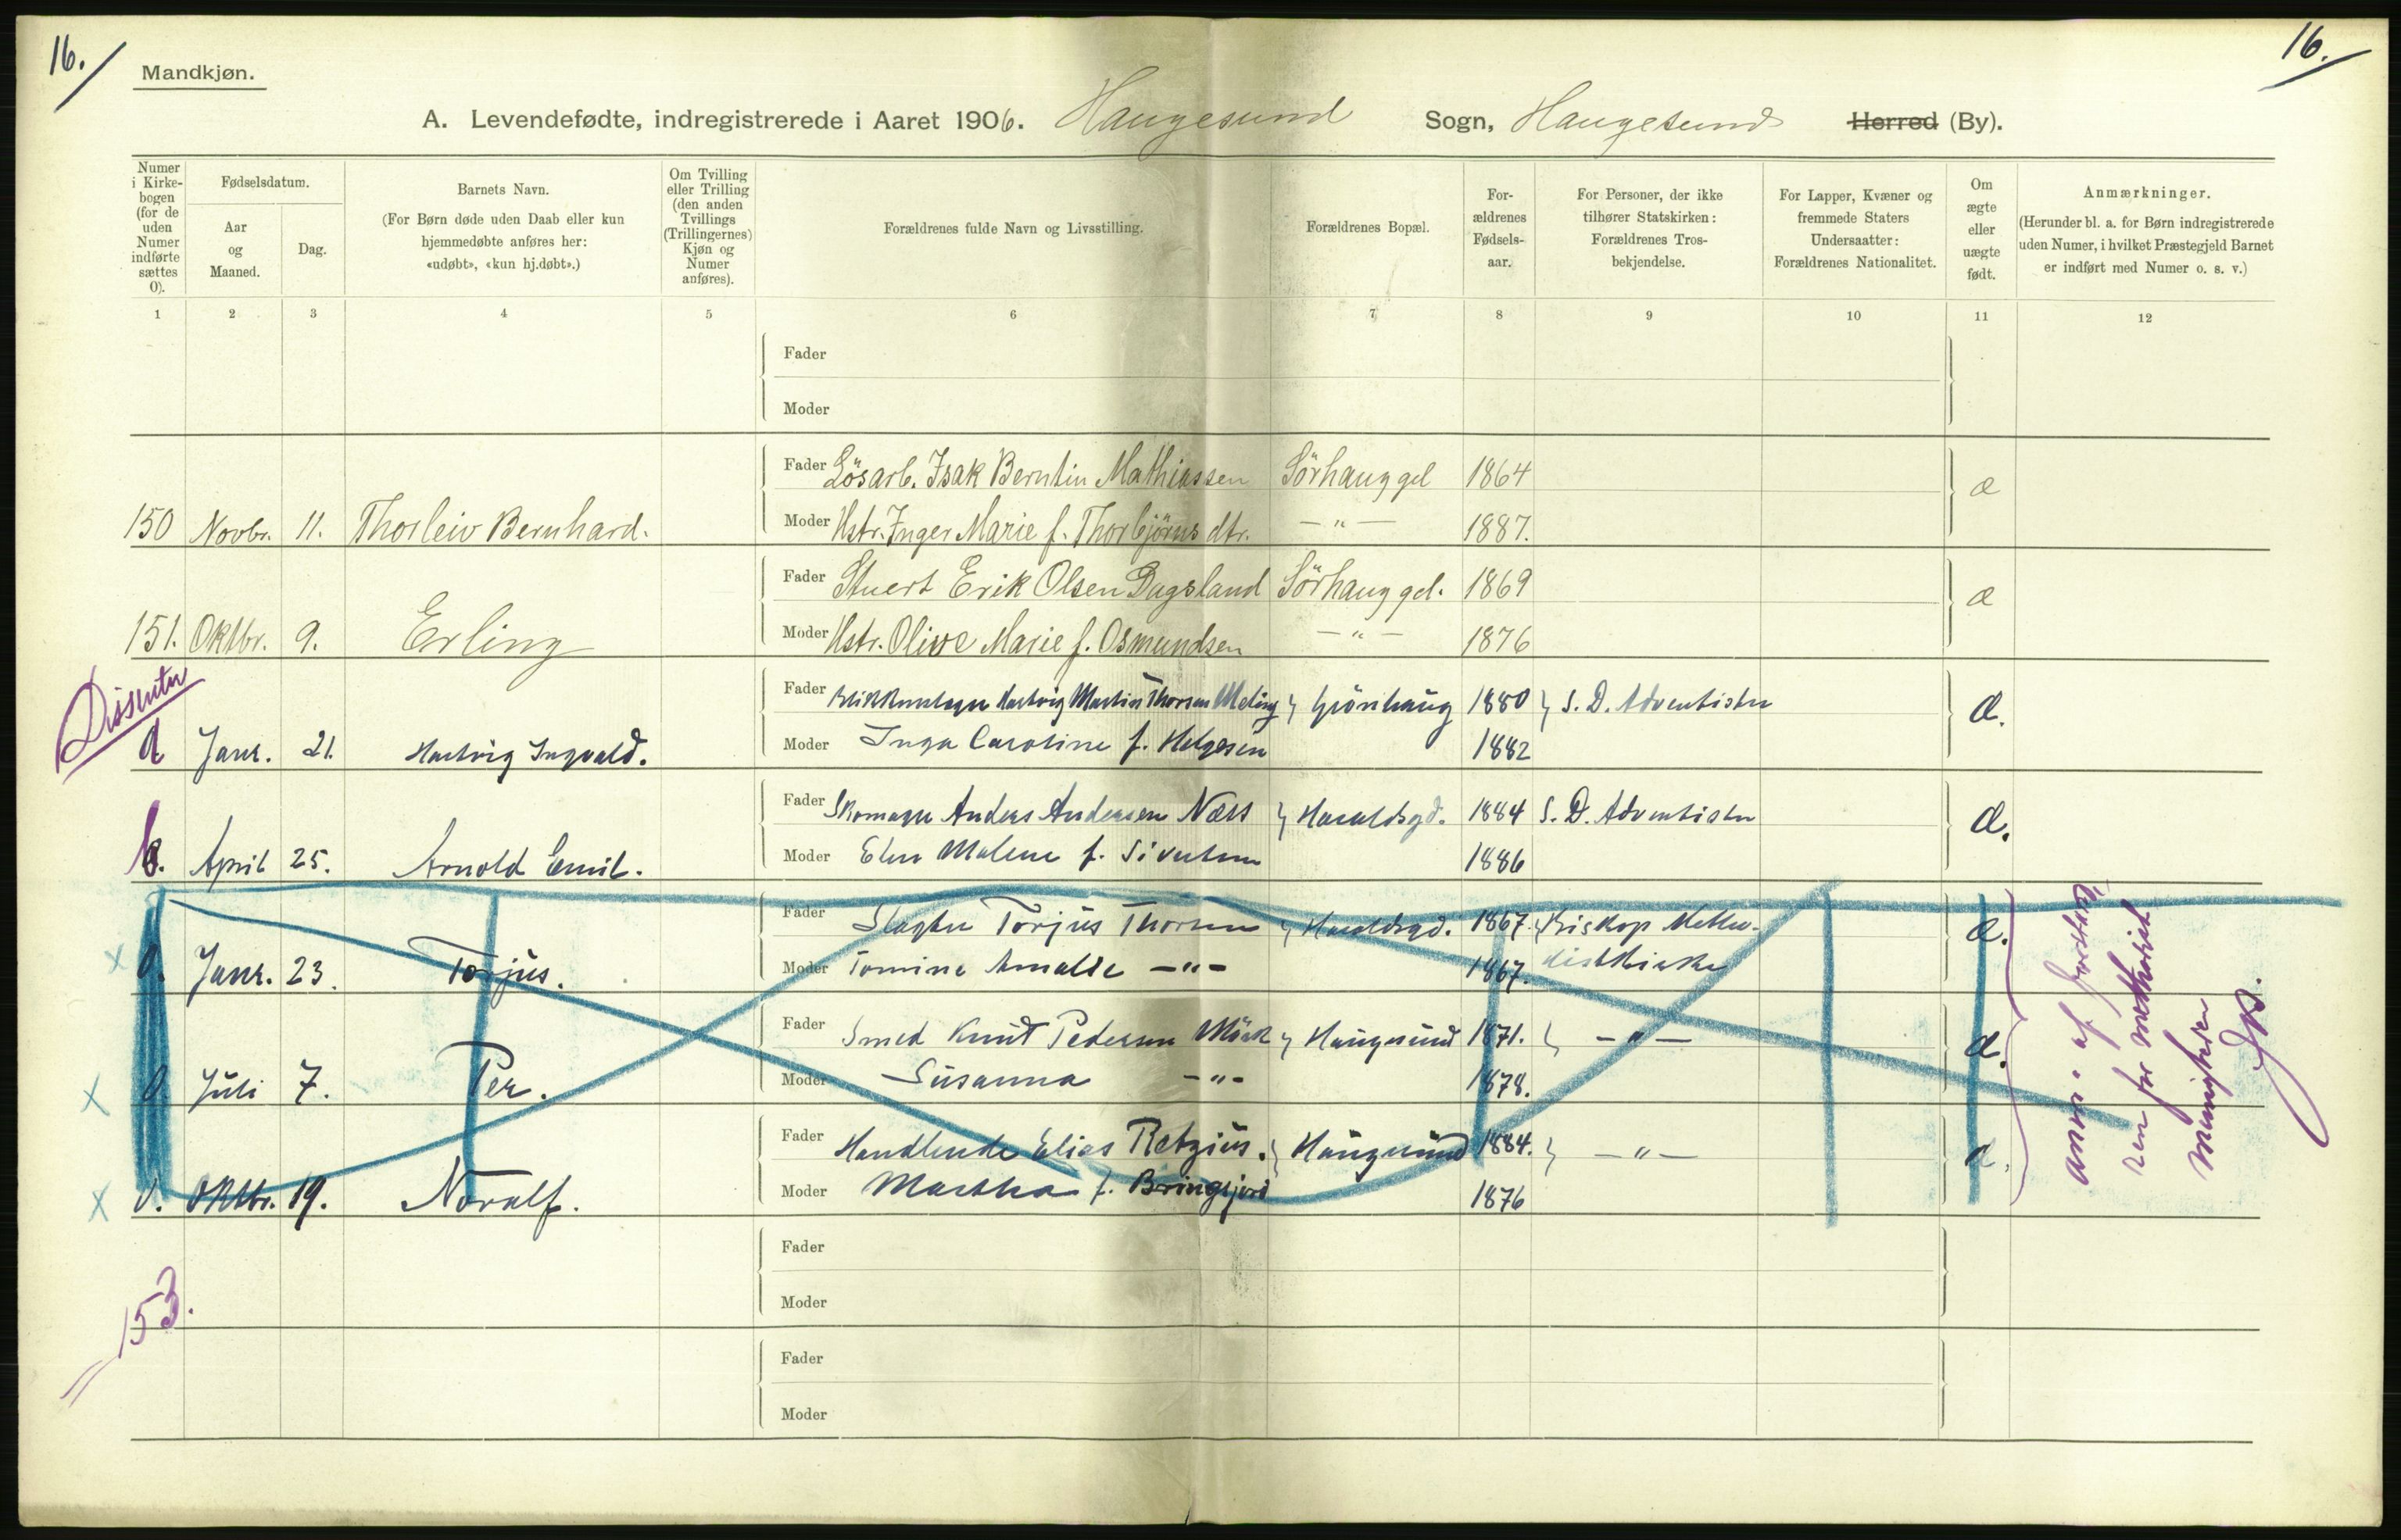 16. 16.
Mandkjøn.
A. Levendefødte, indregistrerede i Aaret 1906. Haugesund Sogn, Haugesund Herred (By).
Numer i Kirke-bogen (for de uden Numer indførte sættes 0).
Fødselsdatum.
Aar og Maaned.
Dag.
Barnets Navn.
(For Børn døde uden Daab eller kun hjemmedøbte anføres her: «udøbt», «kun hj.døbt».)
Om Tvilling eller Trilling (den anden Tvillings (Trillingernes) Kjøn og Numer anføres).
Forældrenes fulde Navn og Livsstilling.
Forældrenes Bopæl.
For-ældrenes Fødsels-aar.
For Personer, der ikke tilhører Statskirken: Forældrenes Tros-bekjendelse.
For Lapper, Kvæner og fremmede Staters Undersaatter: Forældrenes Nationalitet.
Om ægte eller uægte født.
Anmærkninger.
(Herunder bl. a. for Børn indregistrerede uden Numer, i hvilket Præstegjeld Barnet er indført med Numer o. s. v.)
1 2 3 4 5 6 7 8 9 10 11 12
Fader
Moder
Fader Lösarb. Isak Berntin Mathiassen Sörhauggd 1864 æ
150 Novbr. 11. Thorleiv Bernhard. Moder Hstr. Inger Marie f. Thorbjörnsdtr. —"— 1887.
Fader Stuert Erik Olsen Dagsland Sörhauggd. 1869 æ
151. Oktbr. 9. Erling Moder Hstr. Olive Marie f. Osmundsen —"— 1876
Dissenter
Fader Hartvig Martin Thorsen Meling Grönhaug 1880 S. D. Adventister æ.
a Janr. 21. Hartvig Ingvald. Moder Inga Caroline f. Helgesen 1882
Fader Skomager Anders Andersen Næss Haraldsgd. 1884 S. D. Adventister æ.
b. April 25. Arnold Emil. Moder Malene f. Sivertsen 1886
Fader Slagter Torjus Thorsen Haraldsgd. 1867. Biskop Metho- æ.
0. Janr. 23. Torjus. Moder Tomine Amalie —"— 1867. distkirke
Fader Smed Knut Pedersen Mörk Haugesund 1871. —"— æ.
0. Juli 7. Per. Moder Susanna —"— 1878.
Fader Handlende Elias Retzius. Haugesund 1884. —"— æ.
0. Oktbr. 19. Noralf. Moder Martha f. Bringsjord 1876
anm. af forstan-
ren for methodist
menigheden
Fader
Moder
153.
Fader
Moder